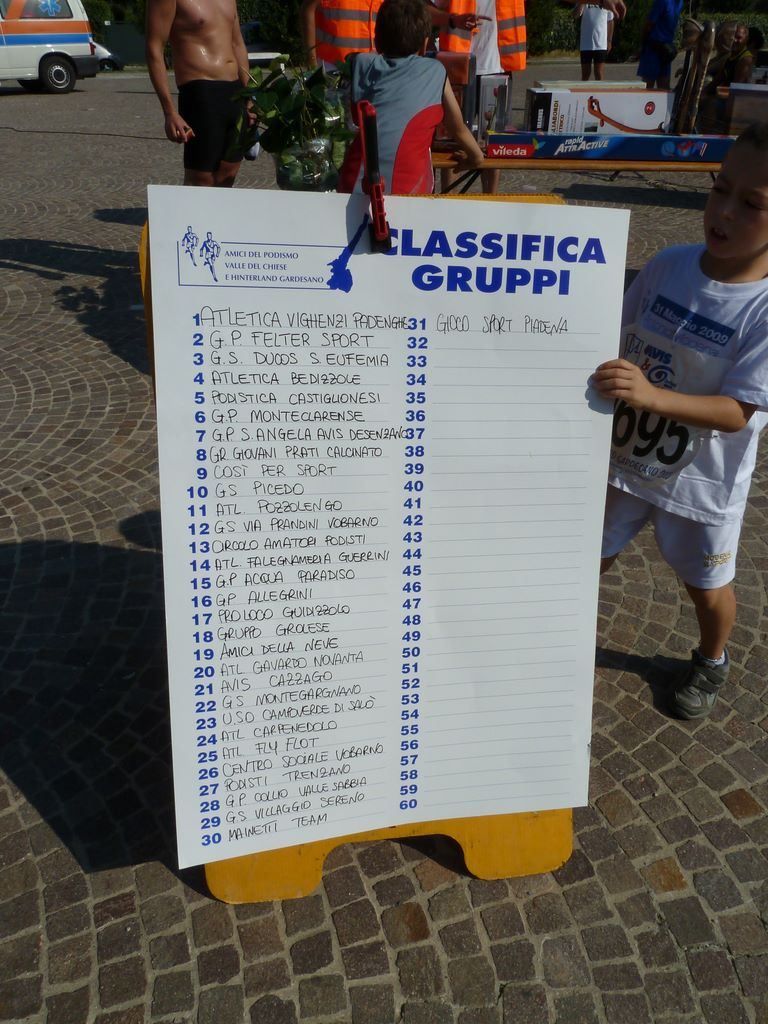 vileda rapid AttrActive
AMICI DEL PODISMO
VALLE DEL CHIESE
E HINTERLAND GARDESANO
CLASSIFICA
GRUPPI
1 ATLETICA VIGHENZI PADENGHE
2 G.P. FELTER SPORT
3 G.S. DUCOS S. EUFEMIA
4 ATLETICA BEDIZZOLE
5 PODISTICA CASTIGLIONESI
6 G.P. MONTECLARENSE
7 G.P S. ANGELA AVIS DESENZANO
8 GR. GIOVANI PRATI CALCINATO
9 COSÌ PER SPORT
10 GS PICEDO
11 ATL. POZZOLENGO
12 GS VIA PRANDINI VOBARNO
13 CIRCOLO AMATORI PODISTI
14 ATL. FALEGNAMERIA GUERRINI
15 G.P ACQUA PARADISO
16 GP ALLEGRINI
17 PROLOCO GUIDIZZOLO
18 GRUPPO GROLESE
19 AMICI DELLA NEVE
20 ATL GAVARDO NOVANTA
21 AVIS CAZZAGO
22 GS MONTEGARGNANO
23 U.SO CAMPOVERDE DI SALÒ
24 ATL CARPENEDOLO
25 ATL FLY FLOT
26 CENTRO SOCIALE VOBARNO
27 PODISTI TRENZANO
28 G.P COLLIO VALLE SABBIA
29 GS VILLAGGIO SERENO
30 MAINETTI TEAM
31 GIOCO SPORT PIADENA
32
33
34
35
36
37
38
39
40
41
42
43
44
45
46
47
48
49
50
51
52
53
54
55
56
57
58
59
60
31 Maggio 2009
AVIS
695